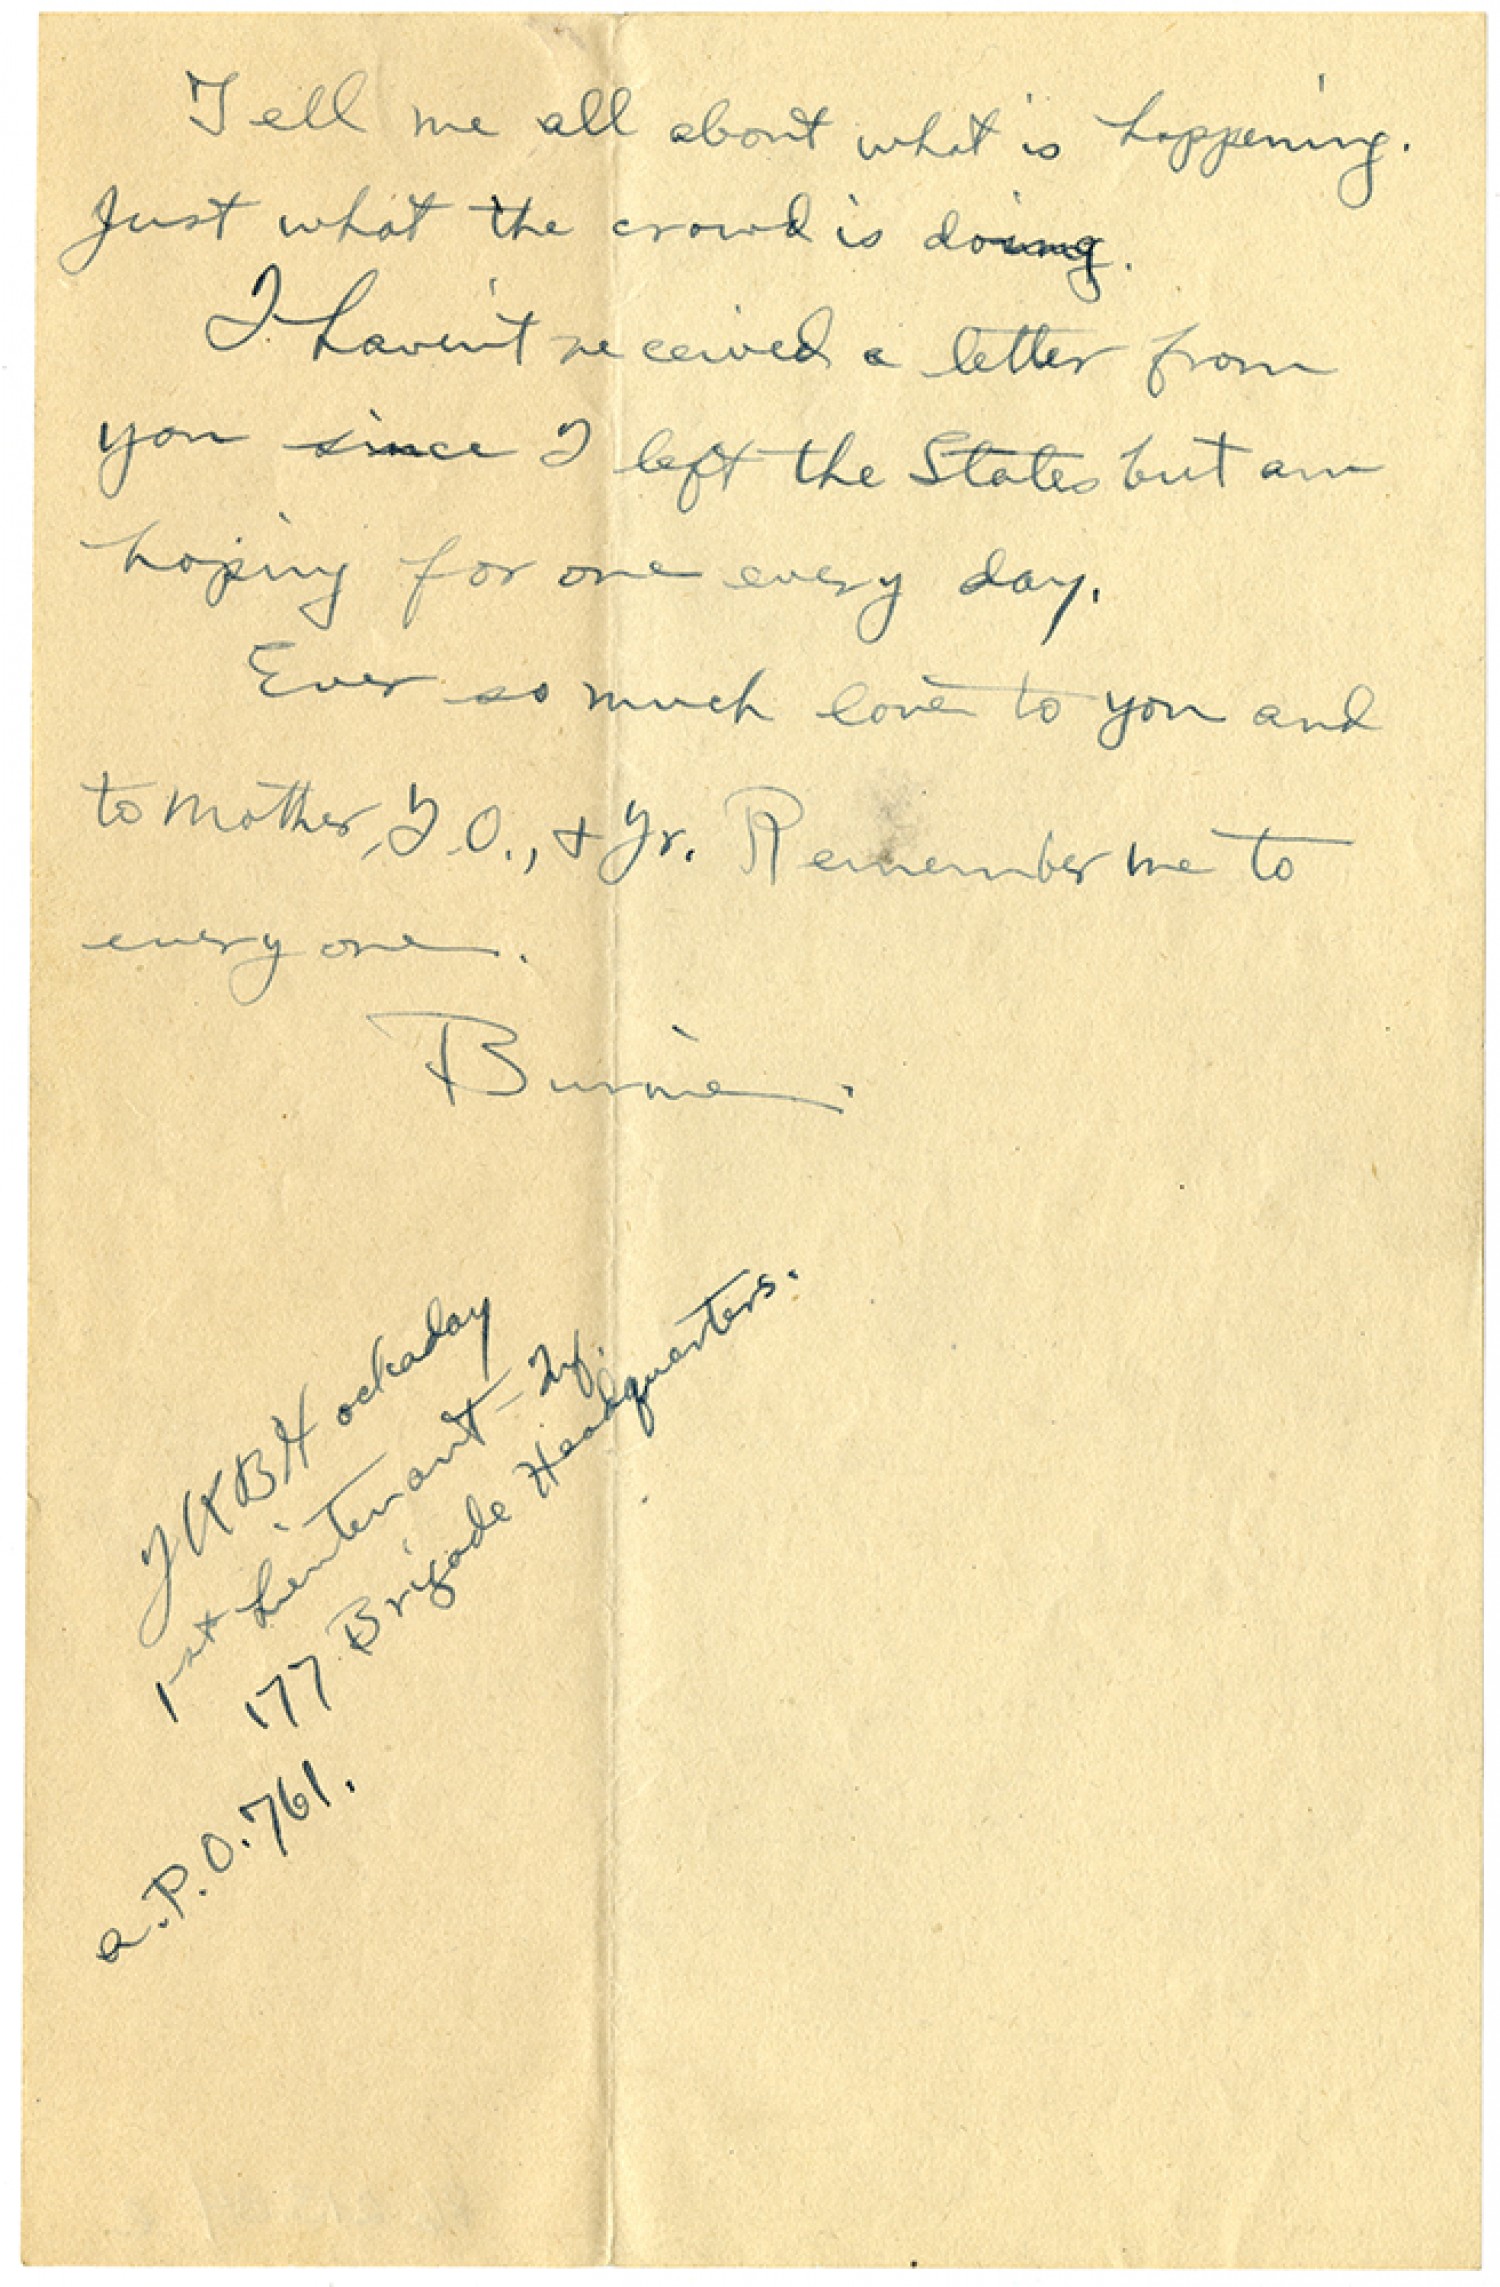 Tell me all about what is happening.
Just what the crowd is doing.
I haven't received a letter from
you since I left the States but am
hoping for one every day.
Ever so much love to you and
to Mother, I.O., + Jr. Remember me to
every one.
Burnie.
Hockaday
1st Lieutenant - Inf.
177 Brigade Headquarters.
a.P.O. 761.